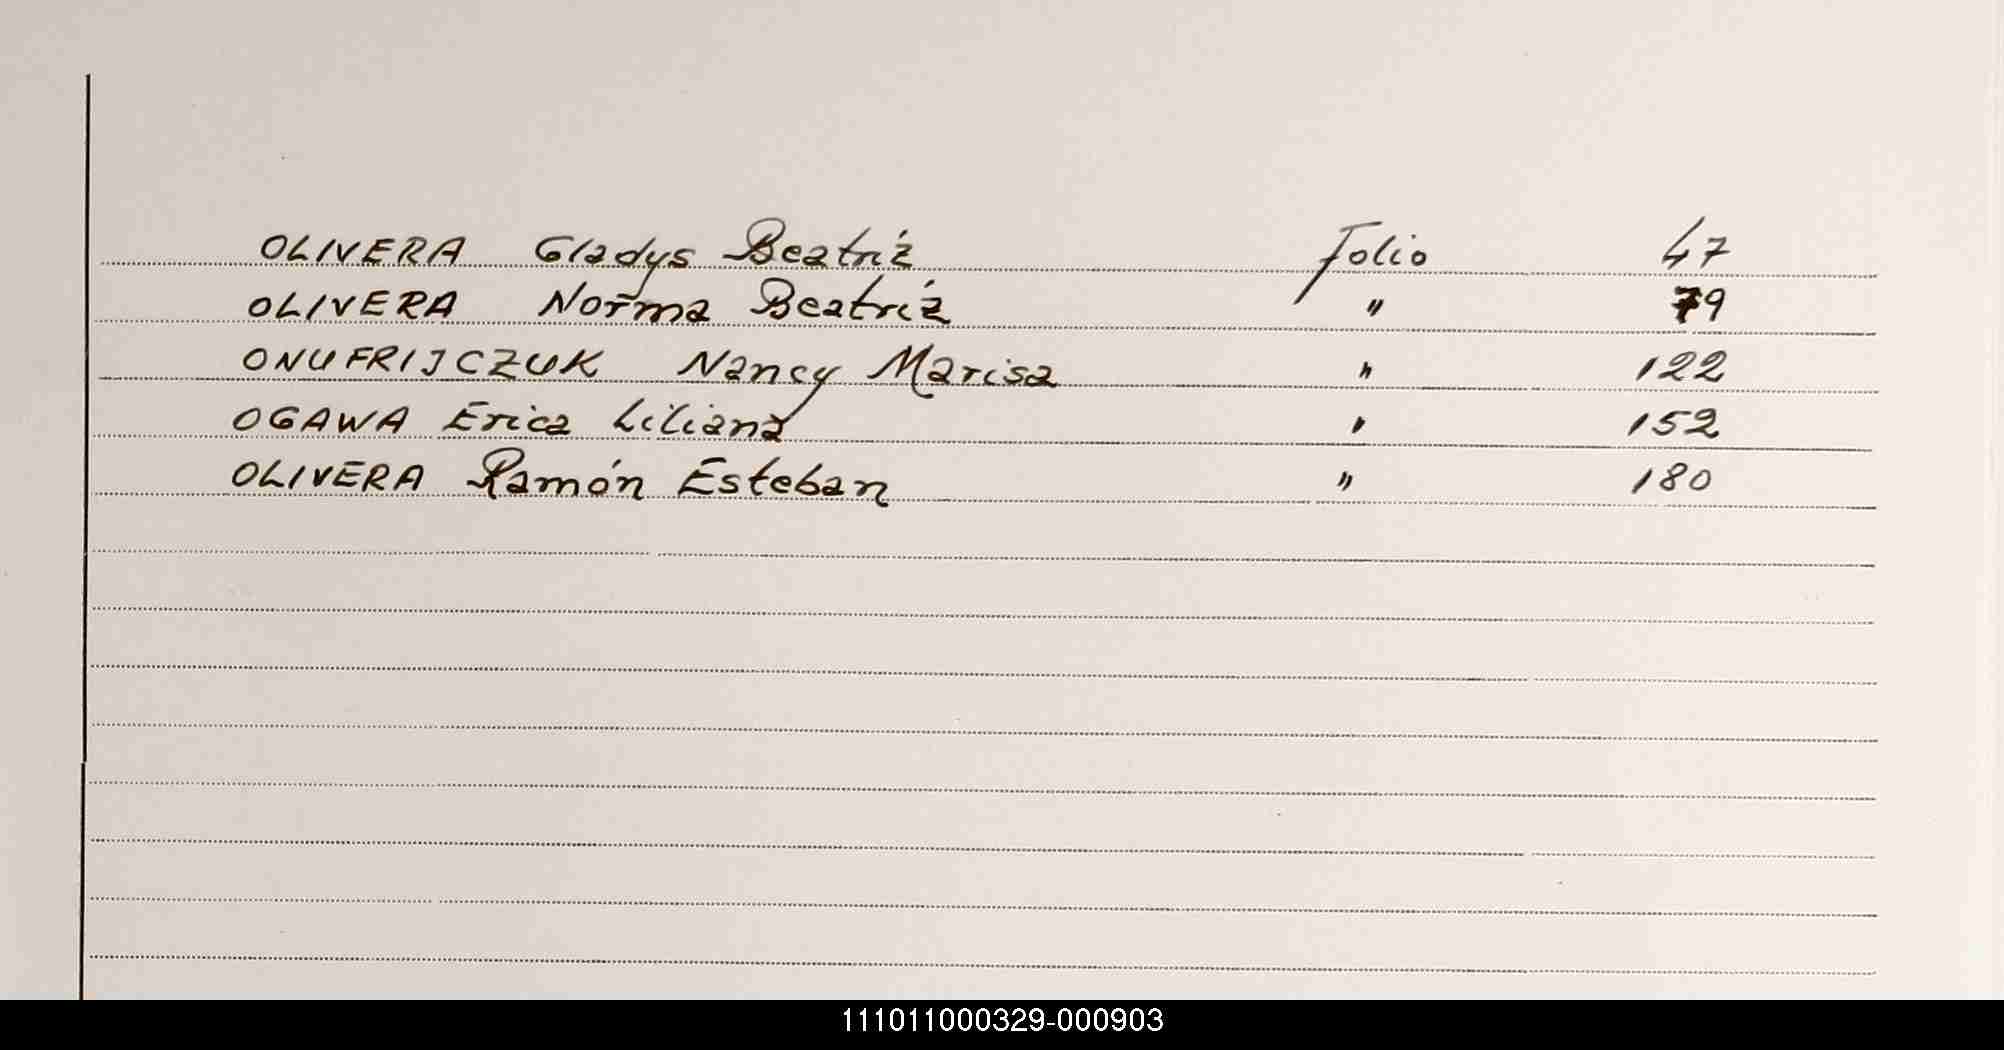 OLIVERA Gladys Beatriz Folio 47
OLIVERA Norma Beatriz " 79
ONUFRIJCZUK Nancy Marisa " 122
OGAWA Erica Liliana " 152
OLIVERA Ramón Esteban " 180
111011000329-000903